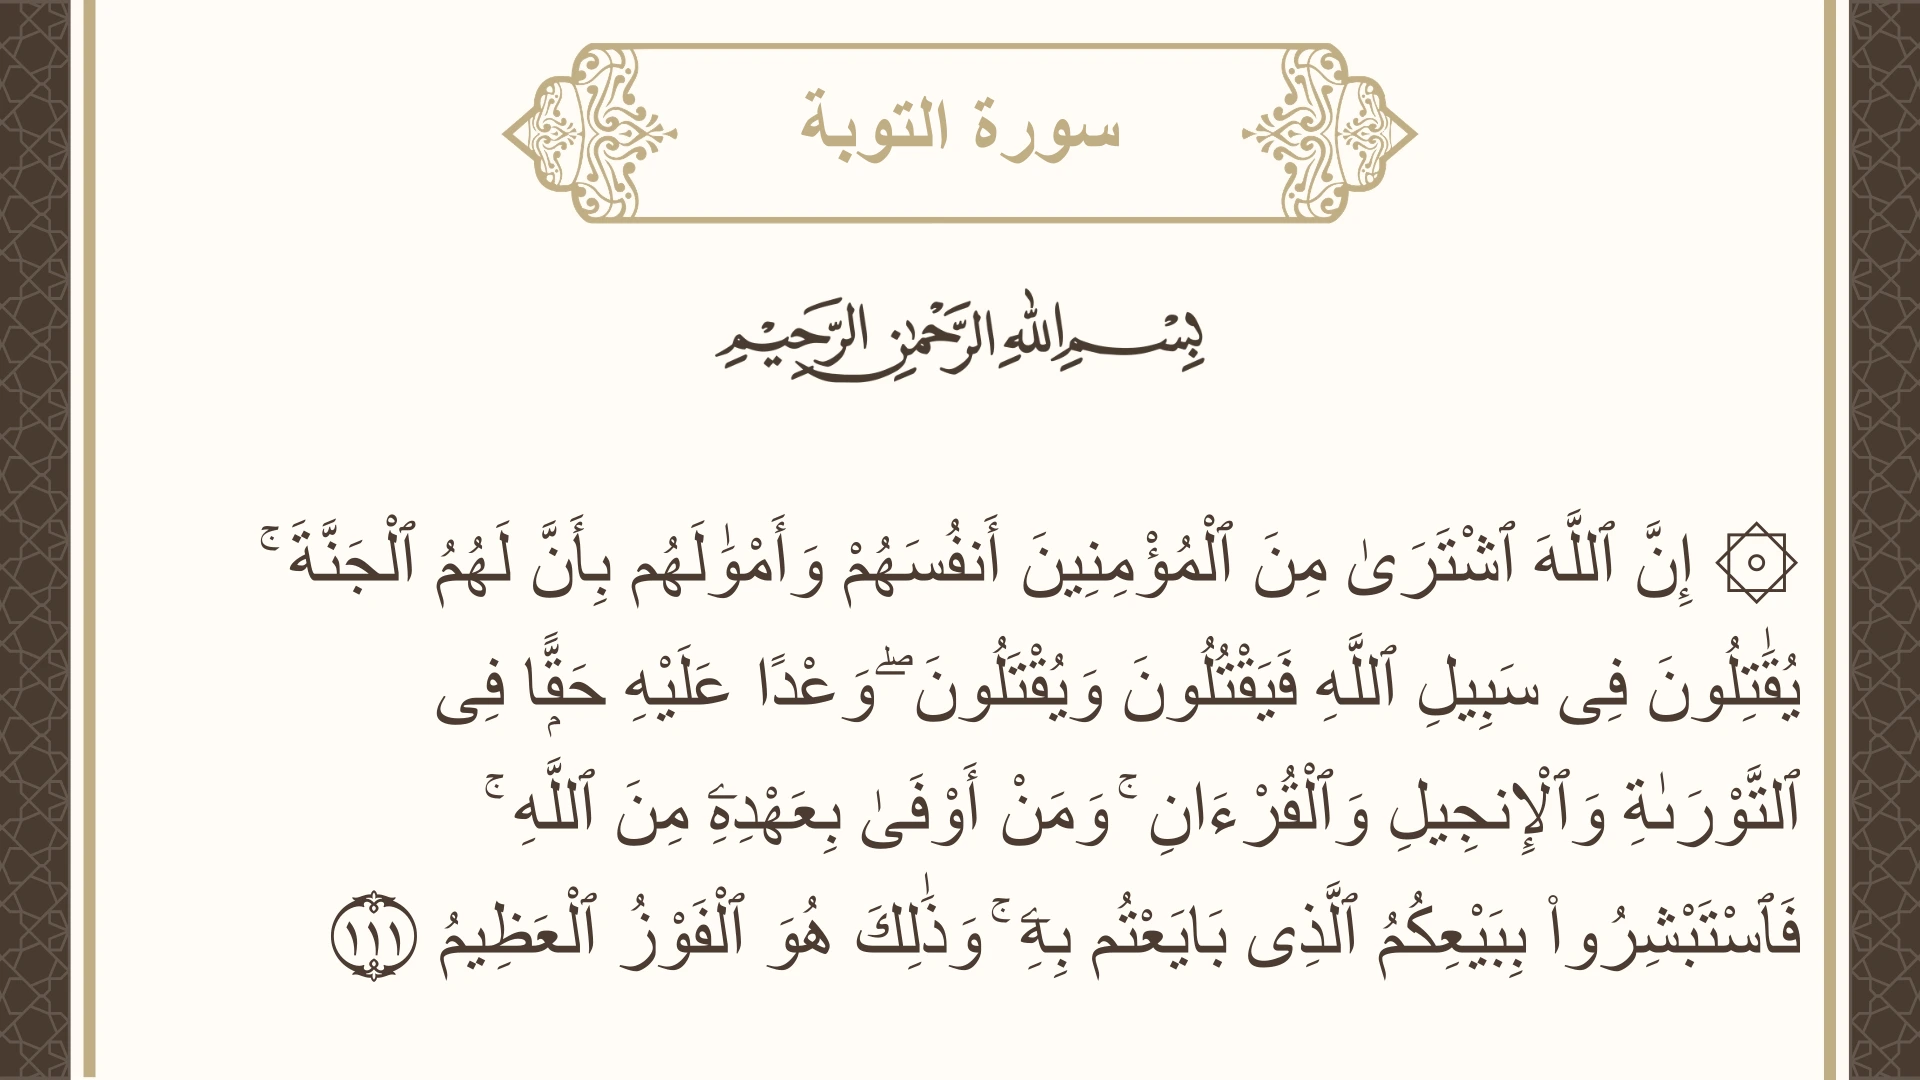 سورة التوبة
بِسْمِ اللهِ الرَّحْمٰنِ الرَّحِيْمِ
۞ إِنَّ ٱللَّهَ ٱشْتَرَىٰ مِنَ ٱلْمُؤْمِنِينَ أَنفُسَهُمْ وَأَمْوَٰلَهُم بِأَنَّ لَهُمُ ٱلْجَنَّةَ ۚ
يُقَٰتِلُونَ فِى سَبِيلِ ٱللَّهِ فَيَقْتُلُونَ وَيُقْتَلُونَ ۖ وَعْدًا عَلَيْهِ حَقًّۭا فِى
ٱلتَّوْرَىٰةِ وَٱلْإِنجِيلِ وَٱلْقُرْءَانِ ۚ وَمَنْ أَوْفَىٰ بِعَهْدِهِۦ مِنَ ٱللَّهِ ۚ
فَٱسْتَبْشِرُوا۟ بِبَيْعِكُمُ ٱلَّذِى بَايَعْتُم بِهِۦ ۚ وَذَٰلِكَ هُوَ ٱلْفَوْزُ ٱلْعَظِيمُ ١١١